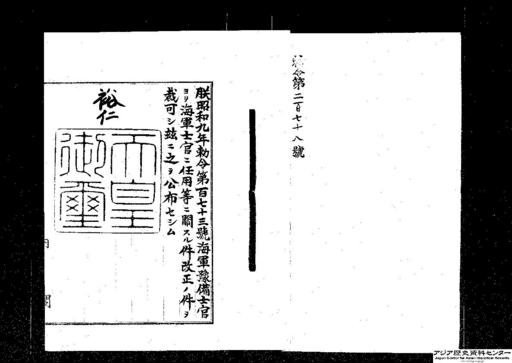 勅令第二百七十八號
朕昭和九年勅令第百七十三號海軍豫備士官
ヨリ海軍士官ニ任用等ニ關スル件改正ノ件ヲ
裁可シ玆ニ之ヲ公布セシム
裕仁
天皇
御璽
アジア歴史資料センター
Japan Center for Asian Historical Records